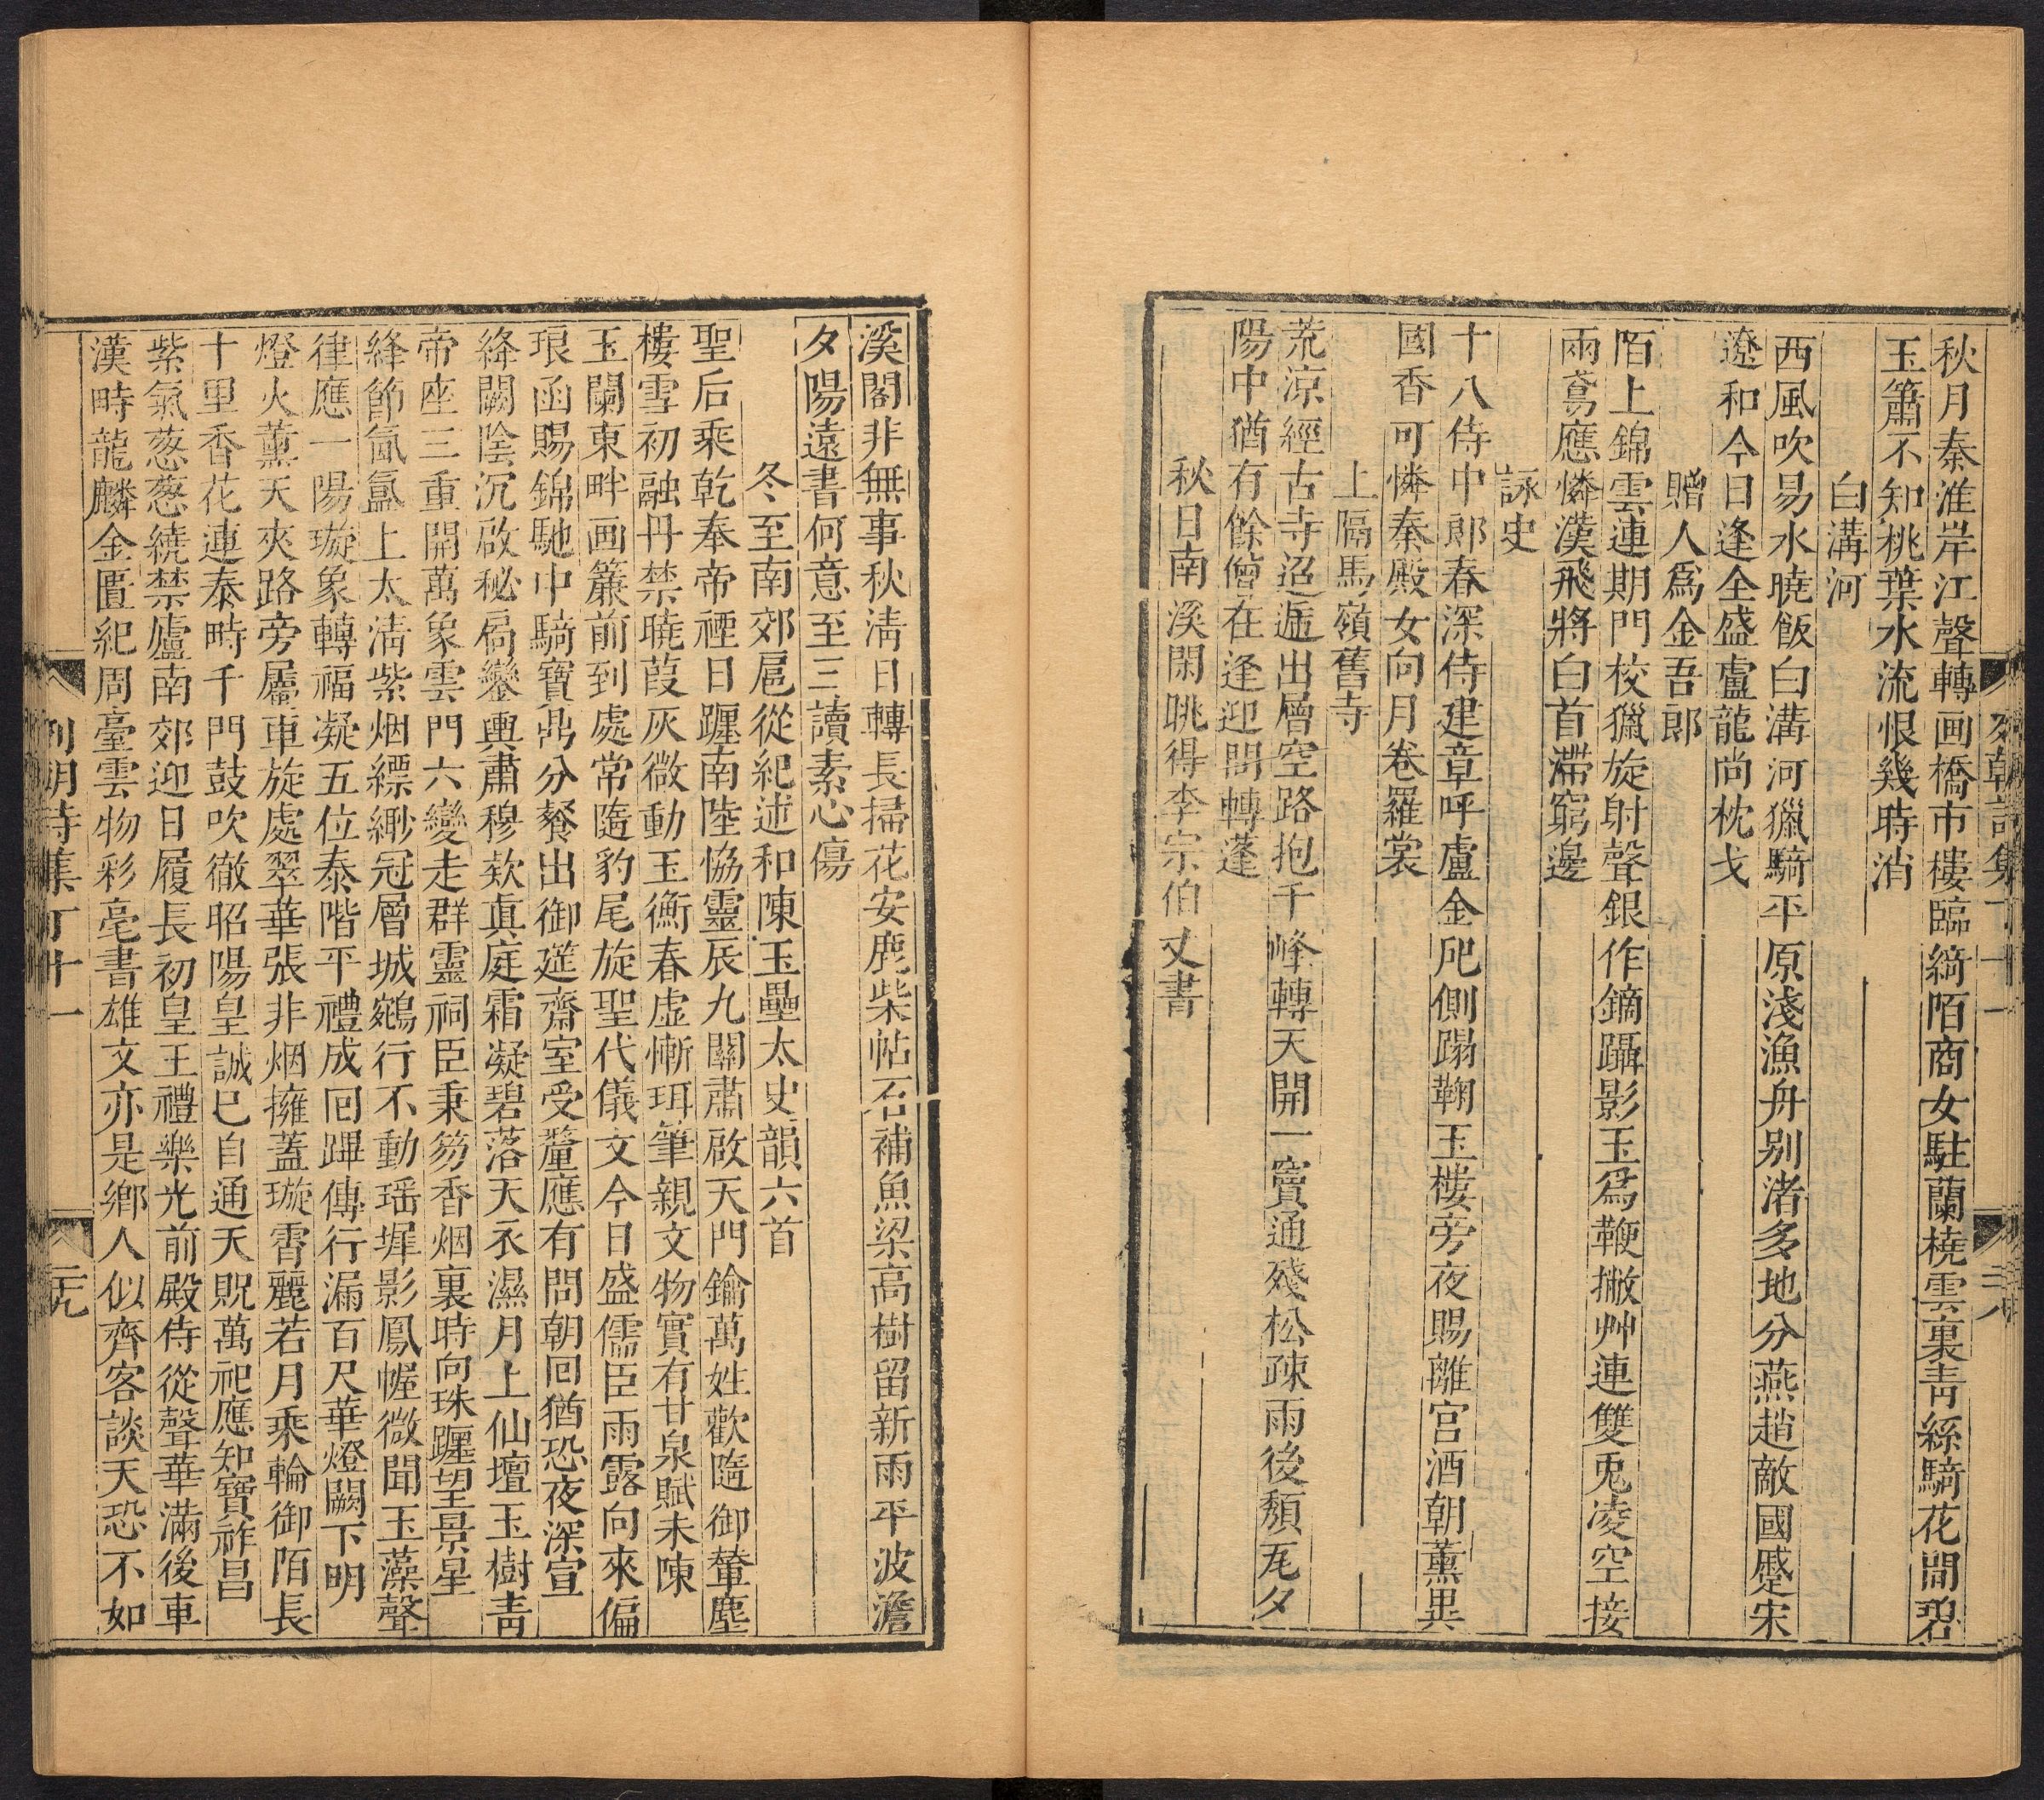 秋月秦淮岸江聲轉画橋市樓臨綺陌商女駐蘭橈雲裏青絲騎花間碧
玉簫不知桃葉水流恨幾時消
白溝河
西風吹易水曉飯白溝河獵騎平原淺漁舟別渚多地分燕趙敵國蹙宋
遼和今日逢全盛盧龍尚枕戈
贈人爲金吾郎
陌上錦雲連期門校獵旋射聲銀作鏑躡影玉爲鞭撇艸連雙兎凌空接
兩鳶應憐漢飛將白首滯窮邊
詠史
十八侍中郎春深侍建章呼盧金戺側蹋鞠玉樓旁夜賜離宮酒朝薰異
國香可憐秦殿女向月卷羅裳
上隔馬嶺舊寺
荒涼經古寺迢遞出層空路抱千峰轉天開一竇通殘松疎雨後頹瓦夕
陽中猶有餘僧在逢迎問轉蓬
秋日南溪閑眺得李宗伯丈書
溪閣非無事秋淸日轉長掃花安鹿柴帖石補魚梁高樹留新雨平波澹
夕陽遠書何意至三讀素心傷
冬至南郊扈從紀述和陳玉壘太史韻六首
聖后乘乾奉帝禋日躔南陸恊靈辰九關肅啟天門鑰萬姓歡隨御輦塵
樓雪初融丹禁曉葭灰微動玉衡春虛慚珥筆親文物實有甘泉賦未陳
玉闌東畔画簾前到處常隨豹尾旋聖代儀文今日盛儒臣雨露向來偏
琅函賜錦馳中騎寶鼎分餐出御筵齋室受釐應有問朝回猶恐夜深宣
絳闕陰沉啟秘扃鑾輿肅穆欵眞庭霜凝碧落天衣濕月上仙壇玉樹靑
帝座三重開萬象雲門六變走群靈祠臣秉笏香烟裏時向珠躔望景星
絳節氤氳上太淸紫烟縹緲冠層城鵷行不動瑶墀影鳳幄微聞玉藻聲
律應一陽璇象轉福凝五位泰階平禮成回蹕傳行漏百尺華燈闕下明
燈火薰天夾路旁屬車旋處翠華張非烟擁蓋璇霄麗若月乘輪御陌長
十里香花連泰畤千門鼓吹徹昭陽皇誠巳自通天貺萬祀應知寶祚昌
紫氣葱葱繞禁廬南郊迎日履長初皇王禮樂光前殿侍從聲華滿後車
漢畤龍麟金匱紀周臺雲物彩毫書雄文亦是鄉人似齊客談天恐不如
列朝詩集丁十一
二十九